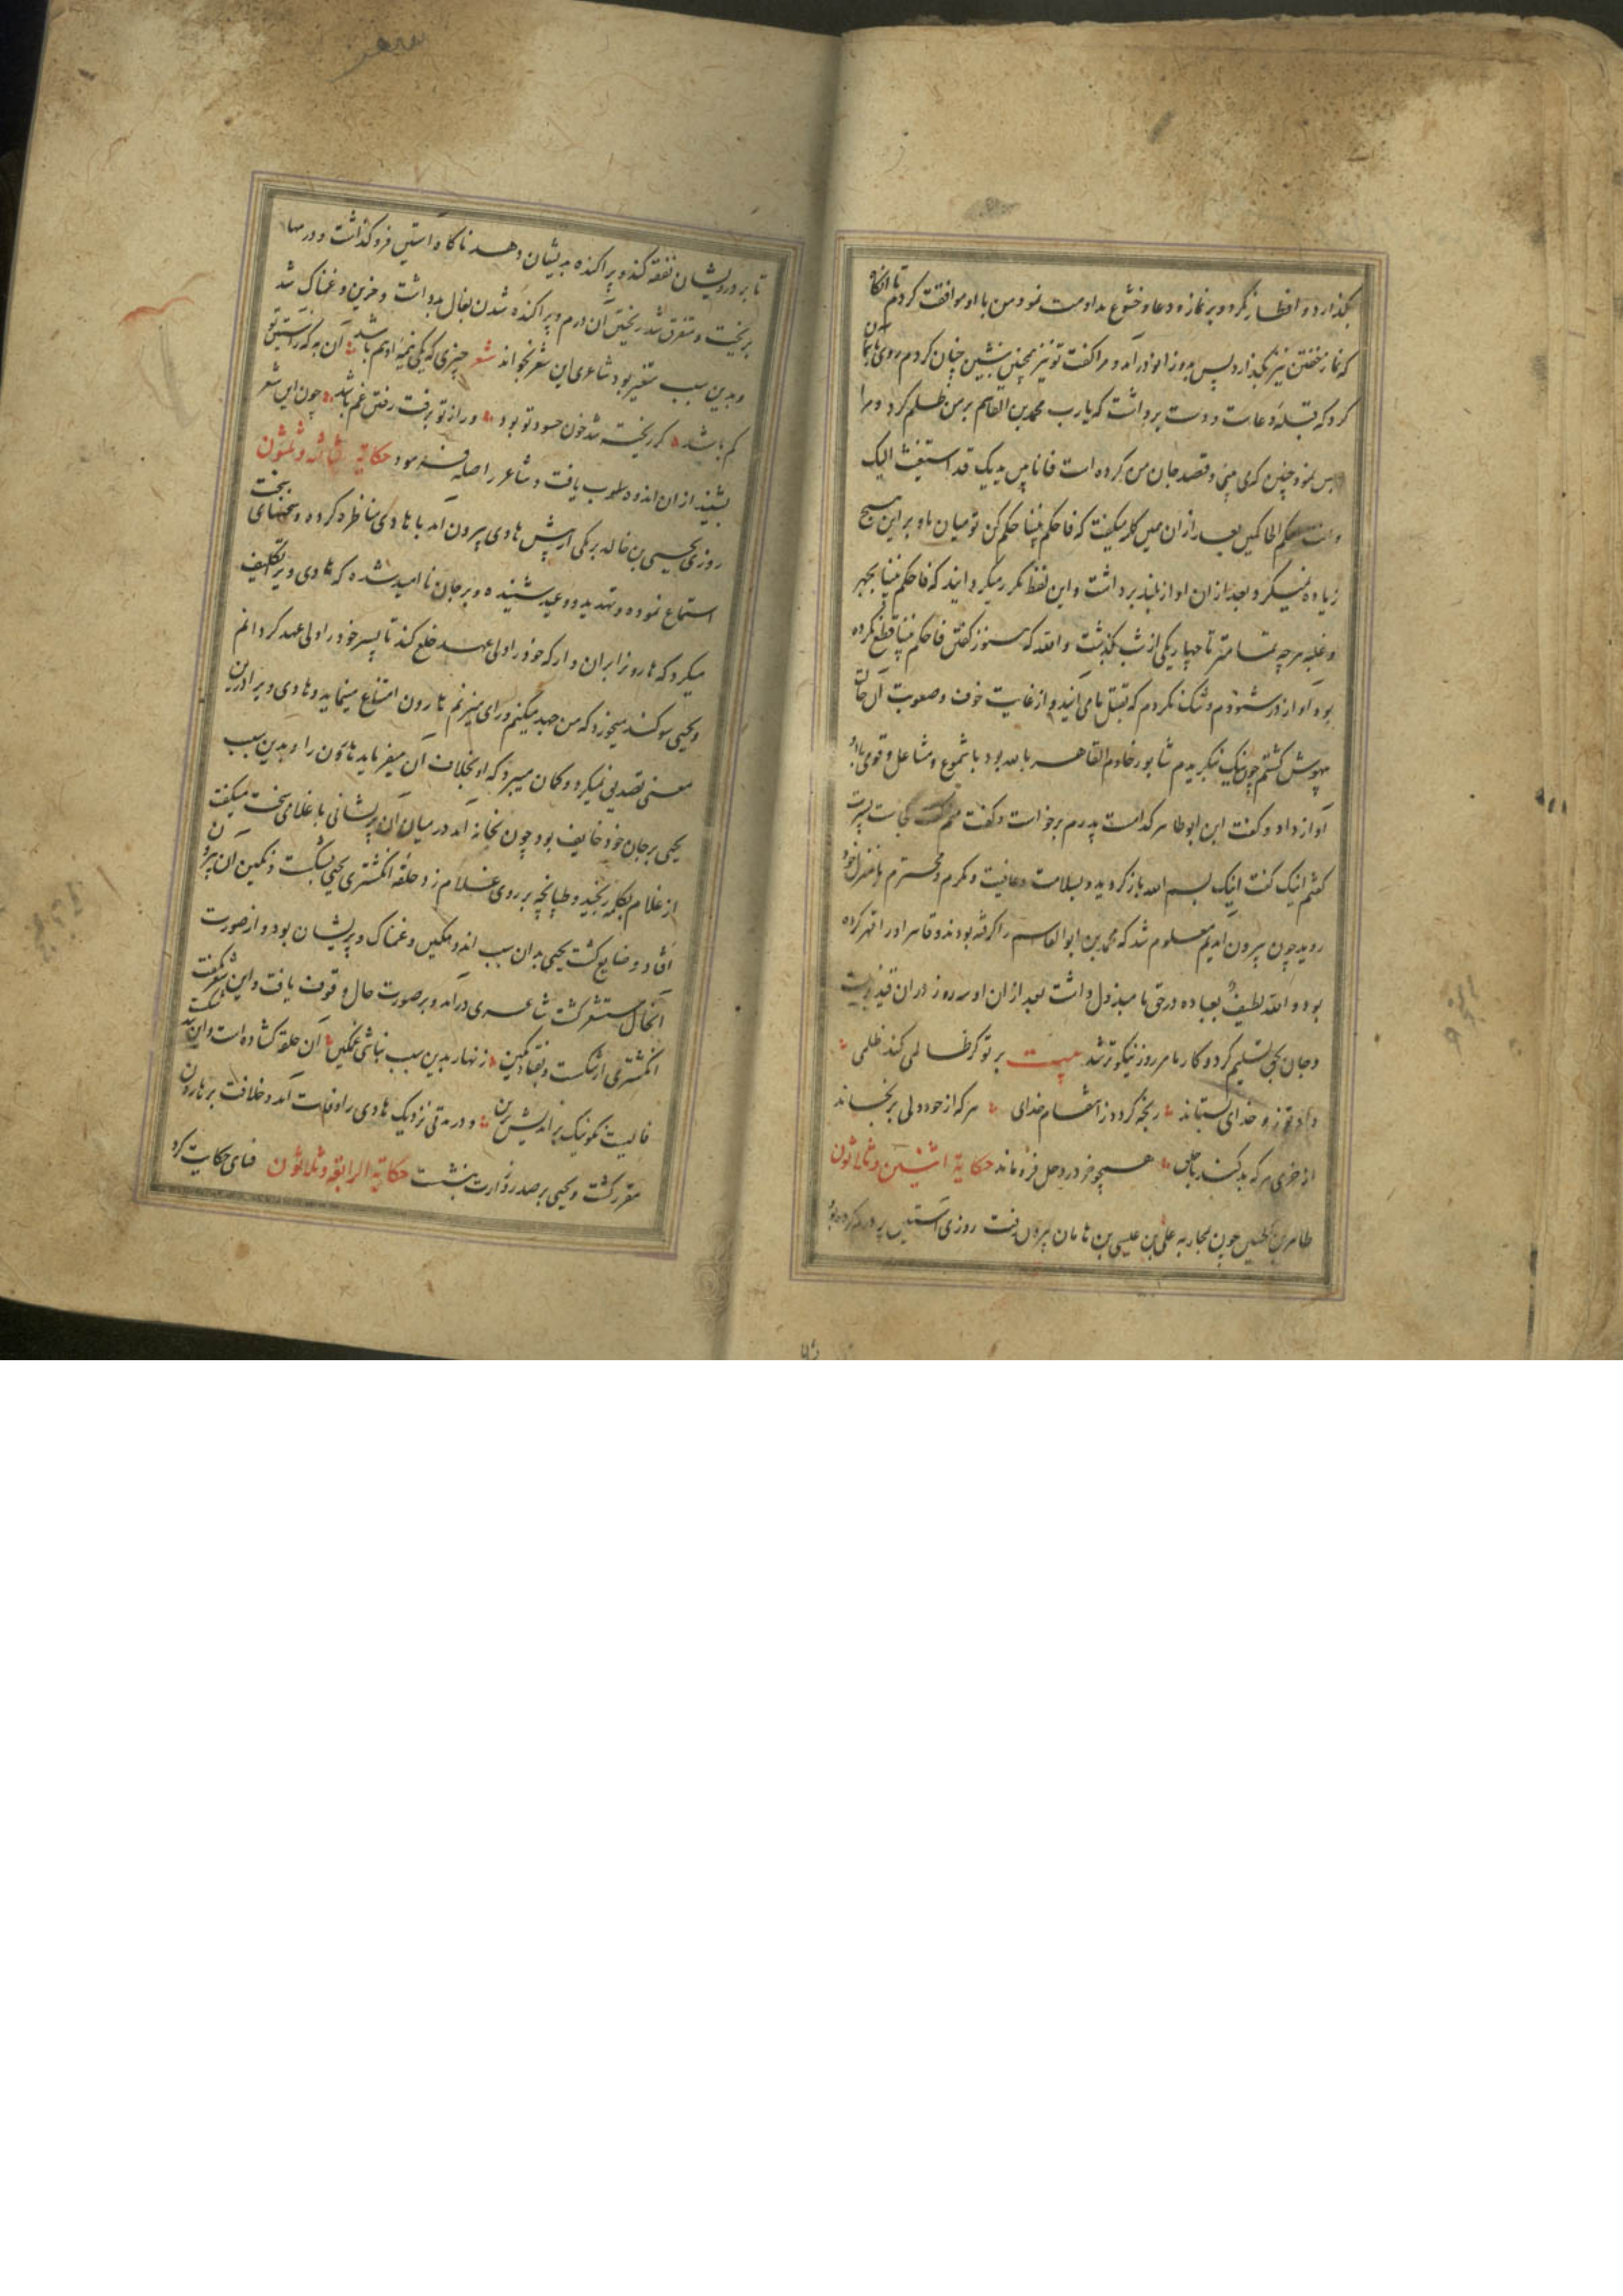 بگذارد و افطار نکرد و بر نماز و دعا و خشوع مداومت نمود و من با او موافقت کردم تا انکاه
که نماز خفتن نیز بگذارد پس بدو زانو درآمد و مرا گفت تو نیز همچنین بنشین چنان کردم و روی
کرد و که قبله دعاست و دست برداشت که یارب محمد بن القاسم بر من ظلم کرد و مرا
حبس نمود چنین که می بینی و قصد جان من کرده است فانا بین یدیک قد استغثت الیک
و انت احکم الحاکمین بعد از ان همین کلمه میگفت که فاحکم بیننا حکم کن تو میان ما و بر این هیچ
زیاده نمیکرد بعد از ان اواز بلند برداشت و این لفظ مکرر میگردانید که فاحکم بیننا بجهر
و غلبه هر چه تمامتر تا چهار یکی از شب بگذشت والله که هنوز گفتن فاحکم بیننا قطع نکرده
بود آواز در شنودم و شک نکردم که بقتل ما می آیند و از غایت خوف و صعوبت آن حالت
بیهوش گشتم چون نیک نیک بدیدم شابور خادم القاهر بالله بود با شموع و مشاعل و قومی با او
آواز داد و گفت این ابوطاهر کدامست پدرم برخواست و گفت منم گفت کجاست پسرت
گفتم اینک گفت اینک بسم الله باز گردید و بسلامت و عافیت و مکرم و محترم با منزل خود
روید چون بیرون آمدیم معلوم شد که محمد بن ابوالقاسم را گرفته بودند و قاهر او را قهر کرده
بود و الله لطیف بعباده در حق ما مبذول داشت بعد از ان او سه روز در ان قید بزیست
و جان بحق تسلیم کرد و کار ما هر روز نیکوتر شد بیت بر تو گر ظالمی کند ظلمی
داد تو زو خدای بستاند رنجه گردد ز انتقام خدای هر که از خود دلی برنجاند
از خری هر که بد کند با خلق همچو خر در وحل فرو ماند حکایة اثنین و ثلاثون
طاهر بن الحسین چون بمحاربه علی بن عیسی بن ماهان بیرون رفت روزی آستین پر درم کرده بود
تا بر درویشان نفقه کند و پراکنده بدیشان دهد ناکاه استین فرو گذاشت و درمها
بریخت و متفرق شد ریختن آن درم و پراکنده شدن بفال بد داشت و حزین و غمناک شد
و بدین سبب متغیر بود شاعری این شعر بخواند شعر چیزی که یکی نیمه او هم باشد آن به که ز استین تو
کم باشد گر ریخته شد خون حسود تو بود ور از تو برفت رفتن غم باشد چون این شعر
بشنید از ان اندوه طرب یافت و شاعر را صله فرمود حکایة ثالثه و ثلثون
روزی یحیی بن خالد برمکی از پیش هادی بیرون آمد با هادی مناظره کرده و سخنهای سخت
استماع نموده و تهدید و وعید شنیده و بر جان ناامید شده که هادی ویرا تکلیف
میکرد که هارون را بران دار که خود را از ولی عهد خلع کند تا پسر خود را ولی عهد گردانم
و یحیی سوگند میخورد که من جهد میکنم و رای میزنم هارون امتناع مینماید و هادی ویرا درین
معنی تصدیق نمیکرد و گمان میبرد که او بخلاف آن میفرماید هارون را و بدین سبب
یحیی بر جان خود خایف بود چون بخانه آمد در میان آن پریشانی با غلامی سخت میگفت
از غلام بکلمه رنجید و طپانچه بر روی غلام زد حلقه انگشتری یحیی بشکست و نگین ان بیرون
افتاد و ضایع گشت یحیی بدان سبب اندوهگین و غمناک و پریشان بود و از صورت
آنحال مستشعر گشت شاعری درآمد و بر صورت حال وقوف یافت و این شعر گفت
انگشتری ار شکست و بفتاد نگین زنهار بدین سبب نباشی غمگین آن حلقه گشاده است و این
فالیست نکو نیک براندیش برین و در مدتی نزدیک هادی را وفات آمد و خلافت بر هارون
مقرر گشت و یحیی بر صدر وزارت بنشست حکایة الرابعة و ثلاثون فنای حکایت کرد